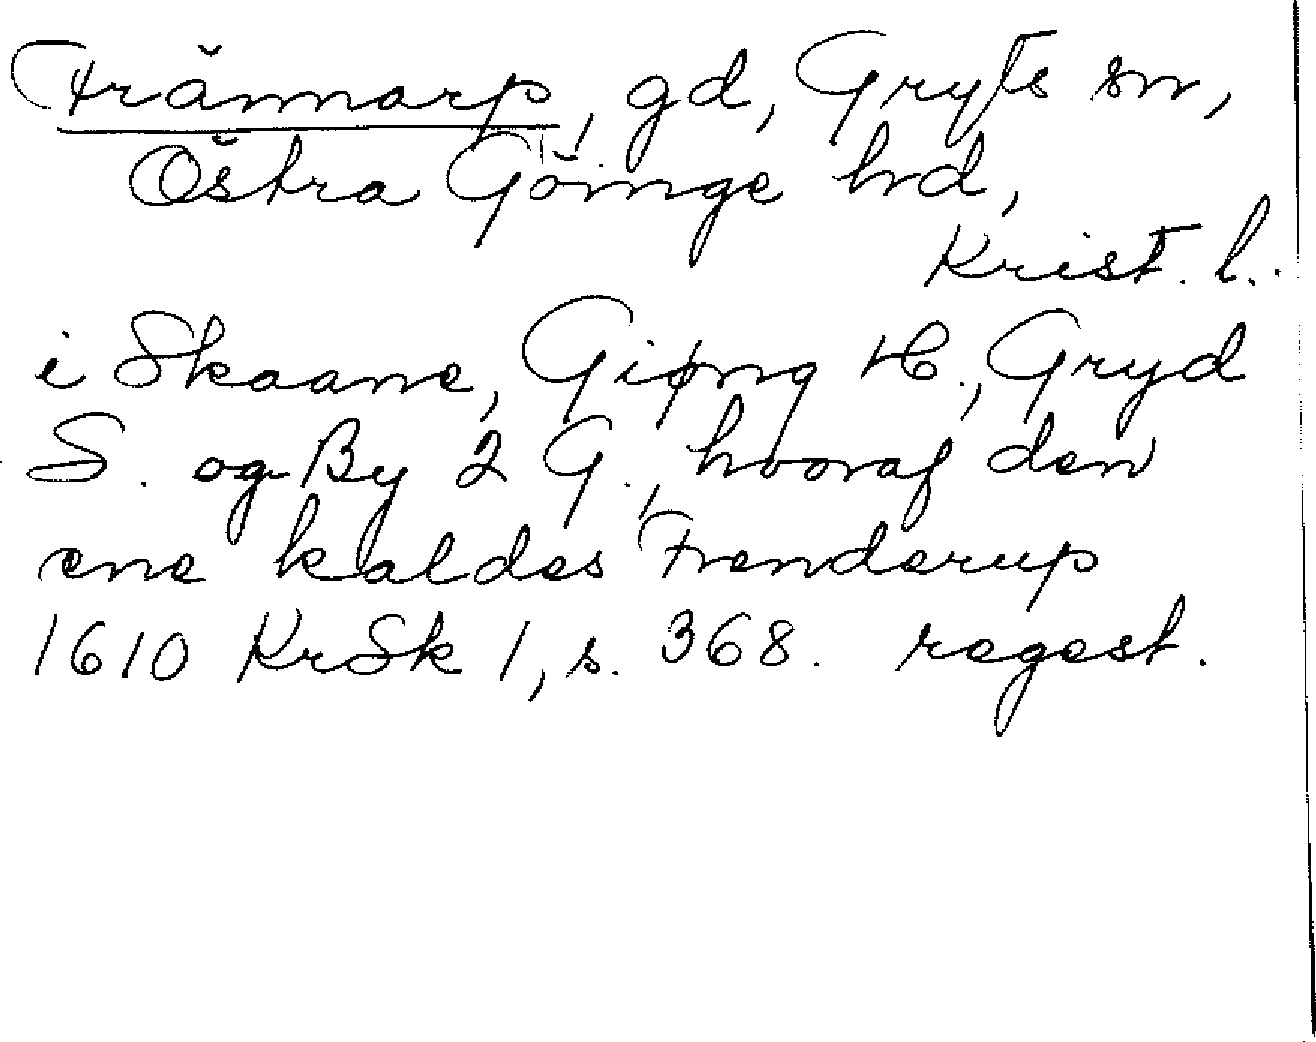 Frännarp, gd, Gryts sn,
Östra Göinge hd,
Krist. l.
i Skaane, Giøng H., Gryd
S. og By 2 G., hvoraf den
ene kaldes Frenderup
1610 KrSk 1, s. 368. regest.